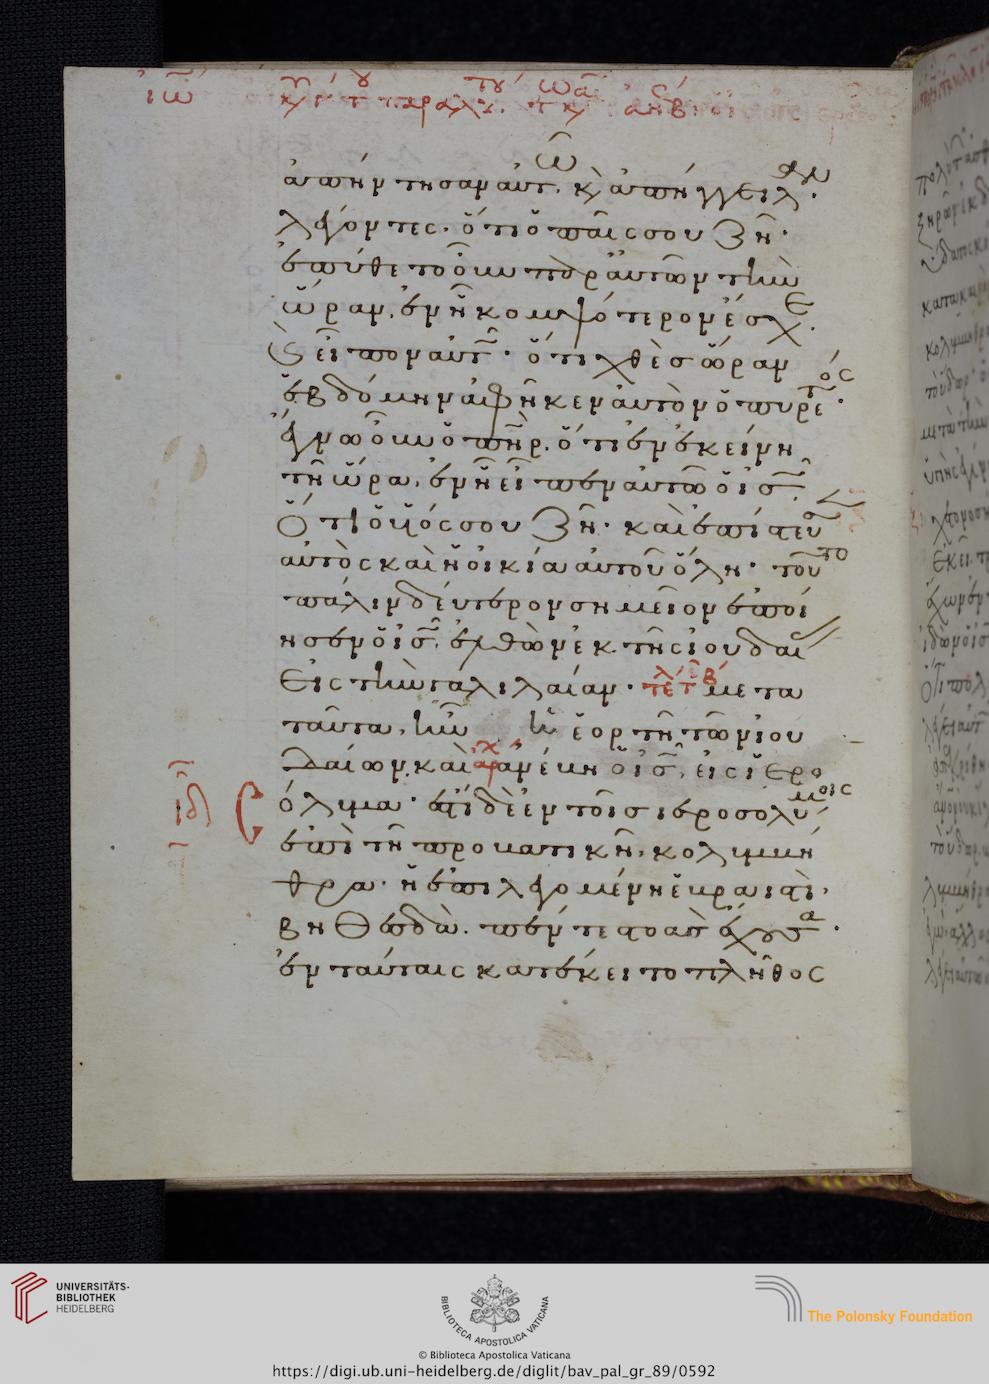 ἀπήντησαν αὐτῶ, κ ἀπήγγειλαν
λέγοντες· ὅτι ὁ παῖς σου ζῆ·
ἐπύθετο οὖν παρ' αὐτῶν τὴν
ὥραν, ἐν ἧ κομψότερον ἔσχε.
κ εἶπον αὐτ· ὅτι χθὲς ὥραν
ἑβδόμην ἀφῆκεν αὐτὸν ὁ πυρετός·
ἔγνω οὖν ὁ πηρ. ὅτι ἐν ἐκείνη
τῆ ὥρα, ἐν ἧ εἶπεν αὐτῶ ὁ ις.
Ὅτι ὁ υἱός σου ζῆ· καὶ ἐπίστευσ
αὐτὸς καὶ ἡ οἰκία αὐτοῦ ὅλη· τοῦτο
πάλιν δεύτερον σημεῖον ἐποί
ησεν ὁ ις. ἐλθὼν ἐκ τῆς ἰουδαί
Εἰς τὴν γαλιλαίαν· μετα
ταῦτα, ἦν ἑορτὴ τῶν ἰου
δαίων, καὶ ἀνέβη ὁ ις, εἰς ἱερο
όλυμα· ἔστι δὲ ἐν τοῖς ἱεροσολύμοις
ἐπὶ τῆ προβατικῆ, κολυμβή
θρα· ἡ ἐπιλεγομένη ἑβραιστὶ,
βηθεσδὰ. πέντε στοὰς ἔχουσα·
ἐν ταύταις κατέκειτο πλῆθος
UNIVERSITÄTS-
BIBLIOTHEK
HEIDELBERG
BIBLIOTECA APOSTOLICA VATICANA
© Biblioteca Apostolica Vaticana
The Polonsky Foundation
https://digi.ub.uni-heidelberg.de/diglit/bav_pal_gr_89/0592